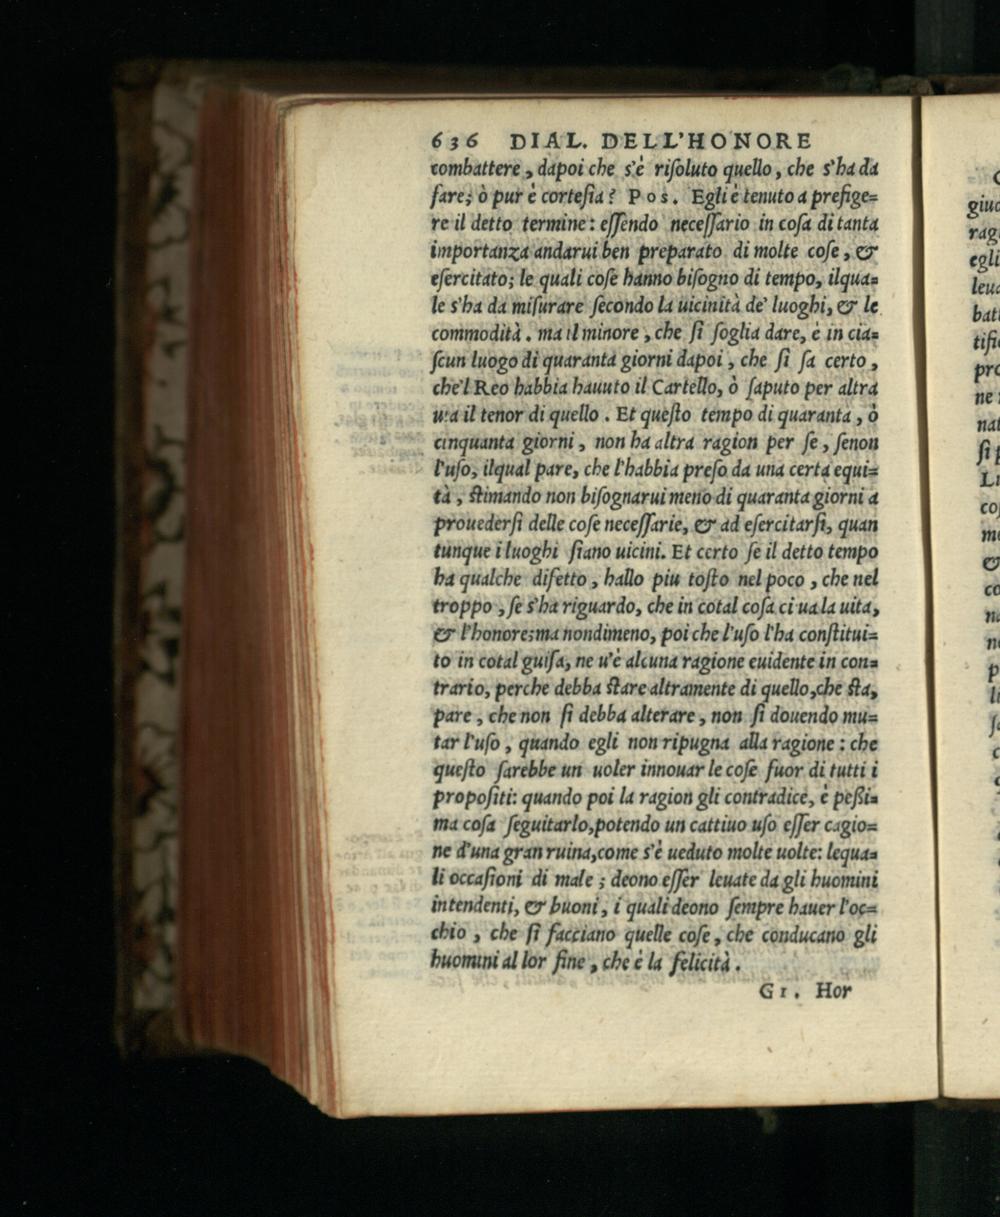 636 DIAL. DELL'HONORE
combattere, dapoi che s'è riſoluto quello, che s'ha da
fare; ò pur è corteſia? Pos. Egli è tenuto a prefige=
re il detto termine: eſſendo neceſſario in coſa di tanta
importanza andarui ben preparato di molte coſe, &
eſercitato; le quali coſe hanno biſogno di tempo, ilqua=
le s'ha da miſurare ſecondo la uicinità de' luoghi, & le
commodità. ma il minore, che ſi ſoglia dare, è in cia=
ſcun luogo di quaranta giorni dapoi, che ſi ſa certo,
che'l Reo habbia hauuto il Cartello, ò ſaputo per altra
uia il tenor di quello. Et queſto tempo di quaranta, ò
cinquanta giorni, non ha altra ragion per ſe, ſenon
l'uſo, ilqual pare, che l'habbia preſo da una certa equi=
tà, ſtimando non biſognarui meno di quaranta giorni a
prouederſi delle coſe neceſſarie, & ad eſercitarſi, quan
tunque i luoghi ſiano uicini. Et certo ſe il detto tempo
ha qualche difetto, hallo piu toſto nel poco, che nel
troppo, ſe s'ha riguardo, che in cotal coſa ci ua la uita,
& l'honore; ma nondimeno, poi che l'uſo l'ha conſtitui=
to in cotal guiſa, ne u'è alcuna ragione euidente in con=
trario, perche debba ſtare altramente di quello, che ſta,
pare, che non ſi debba alterare, non ſi douendo mu=
tar l'uſo, quando egli non ripugna alla ragione: che
queſto ſarebbe un uoler innouar le coſe fuor di tutti i
propoſiti: quando poi la ragion gli contradice, è peßi=
ma coſa ſeguitarlo, potendo un cattiuo uſo eſſer cagio=
ne d'una gran ruina, come s'è ueduto molte uolte: lequa=
li occaſioni di male; deono eſſer leuate da gli huomini
intendenti, & buoni, i quali deono ſempre hauer l'oc=
chio, che ſi facciano quelle coſe, che conducano gli
huomini al lor fine, che è la felicità.
GI. Hor